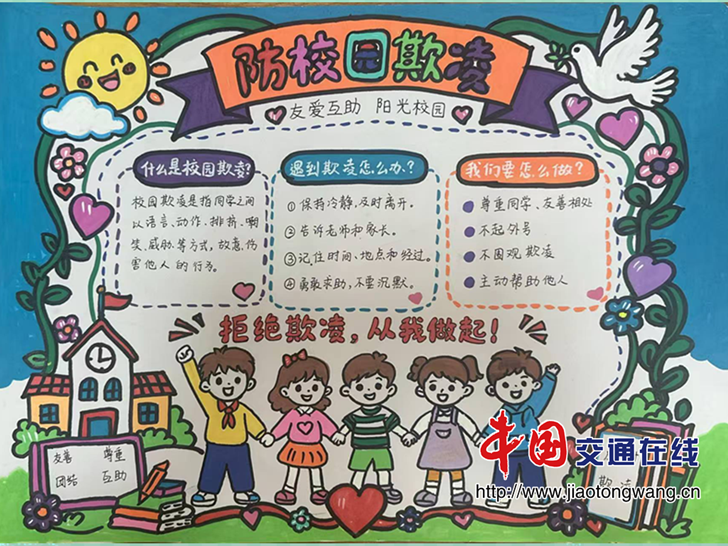 防校园欺凌
友爱互助 阳光校园
什么是校园欺凌?
校园欺凌是指同学之间
以语言、动作、排挤、嘲
笑、威胁等方式，故意伤
害他人的行为。
遇到欺凌怎么办?
①保持冷静，及时离开。
②告诉老师和家长。
③记住时间、地点和经过。
④勇敢求助，不要沉默。
我们要怎么做?
尊重同学、友善相处
不起外号
不围观欺凌
主动帮助他人
拒绝欺凌，从我做起!
友善 尊重
团结 互助
中国交通在线
http://www.jiaotongwang.cn
欺凌